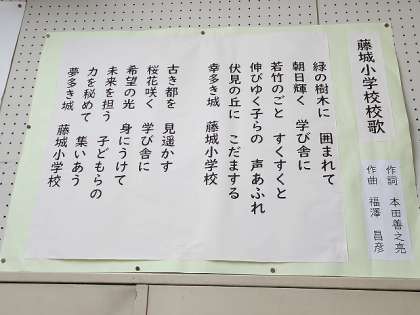 藤城小学校校歌
作詞 本田善之亮
作曲 福澤昌彦
緑の樹木に 囲まれて
朝日輝く 学び舎に
若竹のごと すくすくと
伸びゆく子らの 声あふれ
伏見の丘に こだまする
幸多き城 藤城小学校
古き都を 見遥かす
桜花咲く 学び舎に
希望の光 身にうけて
未来を担う 子どもらの
力を秘めて 集いあう
夢多き城 藤城小学校